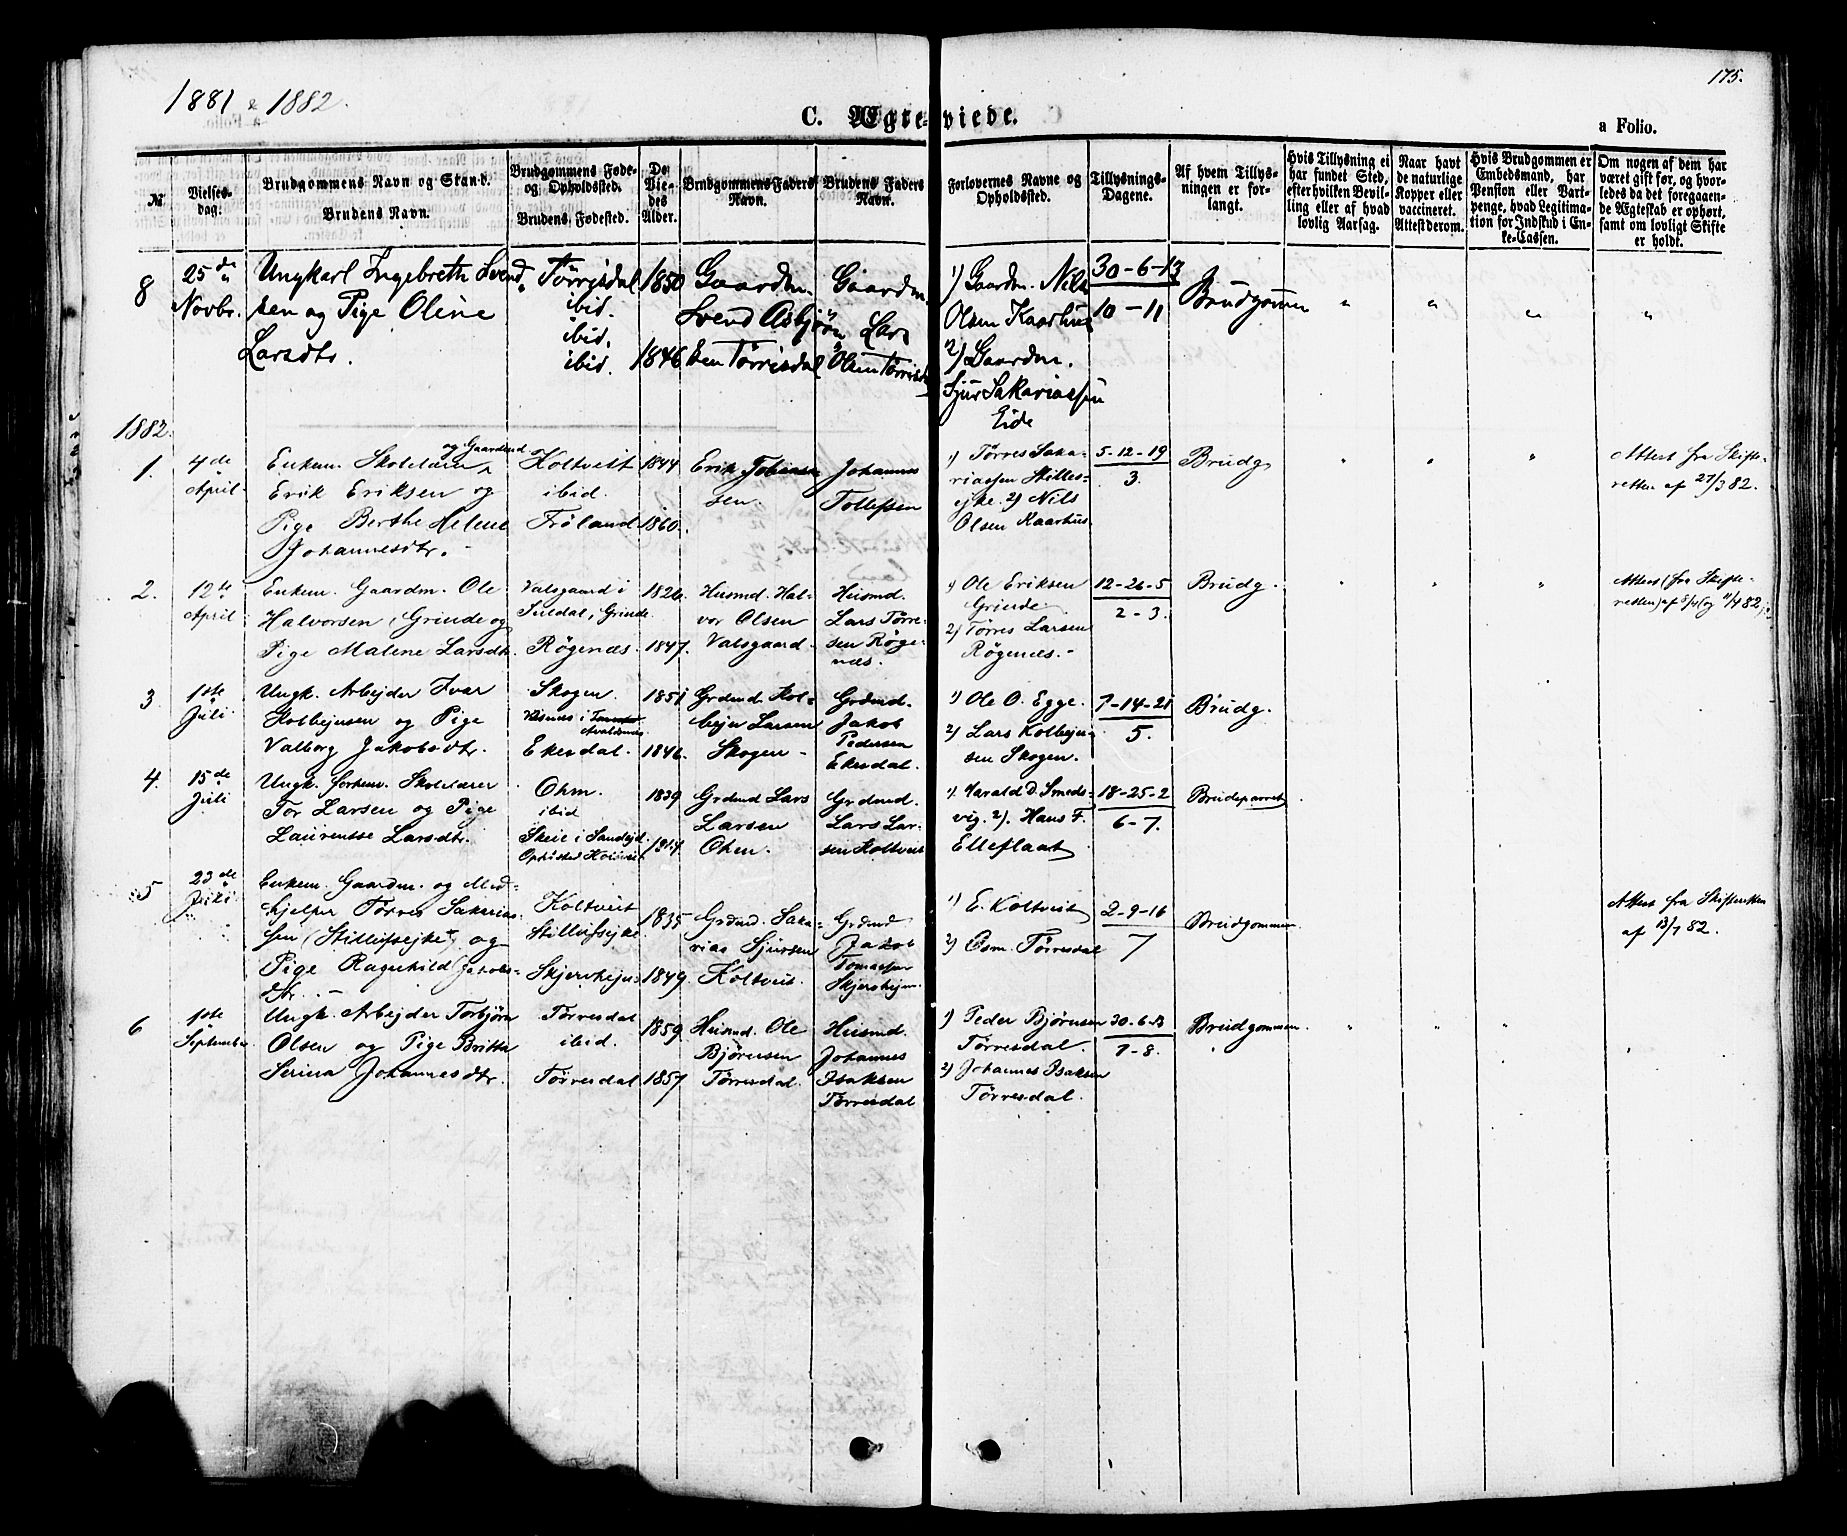 1881 & 1882.
175.
C. Ægte-viede.
a Folio.
№
Vielses-
dag.
Brudgommens Navn og Stand.
Brudens Navn.
Brudgommens Føde-
og Opholdssted.
Brudens Fødested.
De
Vie-
des
Alder.
Brudgommens Faders
Navn.
Brudens Faders
Navn.
Forlovernes Navne og
Opholdssted.
Tillysnings-
Dagene.
Af hvem Tillys-
ningen er for-
langt.
Hvis Tillysning ei
har fundet Sted,
efter hvilken Bevil-
ling eller af hvad
lovlig Aarsag.
Naar havt
de naturlige
Kopper eller
vaccineret.
Attest derom.
Hvis Brudgommen er
Embedsmand, har
Pension eller Vart-
penge, hvad Legitima-
tion for Indskud i En-
ke-Cassen.
Om nogen af dem har
været gift før, og hvor-
ledes da det foregaaen-
de Ægteskab er ophørt,
samt om lovligt Skifte
er holdt.
8
25de
Novbr.
Ungkarl Ingebreth Svend
sen og Pige Oline
Larsdtr.
Tørrisdal
ibid.
ibid.
ibid.
1850
1846
Gaardm.
Svend Asbjørn
sen Tørrisdal
Gaardm.
Lars
Olsen Tørrisdal
1) Gaardm. Nils
Olsen Kaarhus
2) Gaardm.
Sjur Sakariassen
Eide
30-6-13
10-11
Brudgommen
" " " "
1882.
1.
4de
April
Enkem. Skolelærer og Gaardmd
Erik Eriksen og
Pige Berthe Helene
Johannesdtr.
Koltveit
ibid.
Frøland
1844
1860.
Erik Tobiassen
sen
Johannes
Tollefsen
1) Tørres Saka-
riassen Stilles-
ejke. 2) Nils
Olsen Kaarhus.
5-12-19
3.
Brudg.
" " "
Attest fra Skifte-
retten af 27/3 82.
2.
12te
April
Enkem. Gaardm. Ole
Halvorsen (Grinde og
Pige Malene Larsdtr.
Valsgaard i
Suldal, Grinde
Røgenæs
1826.
1847.
Husmd. Hal-
vor Olsen
Valsgaard
Husmd.
Lars Tørre-
sen Røge-
næs.
1) Ole Eriksen
Grinde
2) Tørres Larsen
Røgenæs.
12-26-5
2-3.
Brudg.
" " "
Attest (fra Skifte-
retten) af 5/4 (og 11/4 82)
3.
1ste
Juli
Ungk. Arbejder Ivar
Kolbejnsen og Pige
Valborg Jakobsdtr.
Skogen.
Avaldsnes
Ekesdal.
1851
1846.
Grdmd. Kol-
bejn Larsen
Skogen
Grdmd.
Jakob
Pedersen
Ekesdal.
1) Ole O. Egge.
2) Lars Kolbejn-
sen Skogen.
7-14-21
5.
Brudg.
4.
15de
Juli
Ungk. forhenv. Skolelærer
Tor Larsen og Pige
Laurentse Larsdtr.
Ohm.
ibid
Skeie i Sandejd
Opholdsted Koltveit
1839
Grdmd Lars
Larsen
Ohm.
Grdmd.
Lars Lar-
sen Koltveit
1) Harald D. Smeds-
vig. 2) Hans F.
Elleflaat
18-25-2
6-7.
Brudeparret
5
23de
Juli
Enkem. Gaardm. og Med-
hjelper Tørres Sakarias-
sen (Stillesejke) og
Pige Ragnhild (Jakobs-
dtr.
Koltveit
Stillesejke
Skjershejm
1835
1849.
Grdmd. Saka-
rias Sjursen
Koltveit.
Grdmd
Jakob
Tomassen
Skjershejm
1) E. Koltveit
2) Osm. Tørresdal
2-9-16
7
Brudgommen.
Attest fra Skifteretten
af 13/7 82.
6
1ste
September
Ungk. Arbejder Torbjørn
Olsen og Pige Britta
Serina Johannesdtr.
Tørresdal
ibid.
Tørresdal
1859.
1857.
Husmd. Ole
Bjørnsen
Tørresdal.
Husmd.
Johannes
Isaksen
Tørresdal
1) Peder Bjørnsen
Tørresdal.
2) Johannes Isaksen
Tørresdal.
30-6-13
7-8.
Brudgommen
" " "